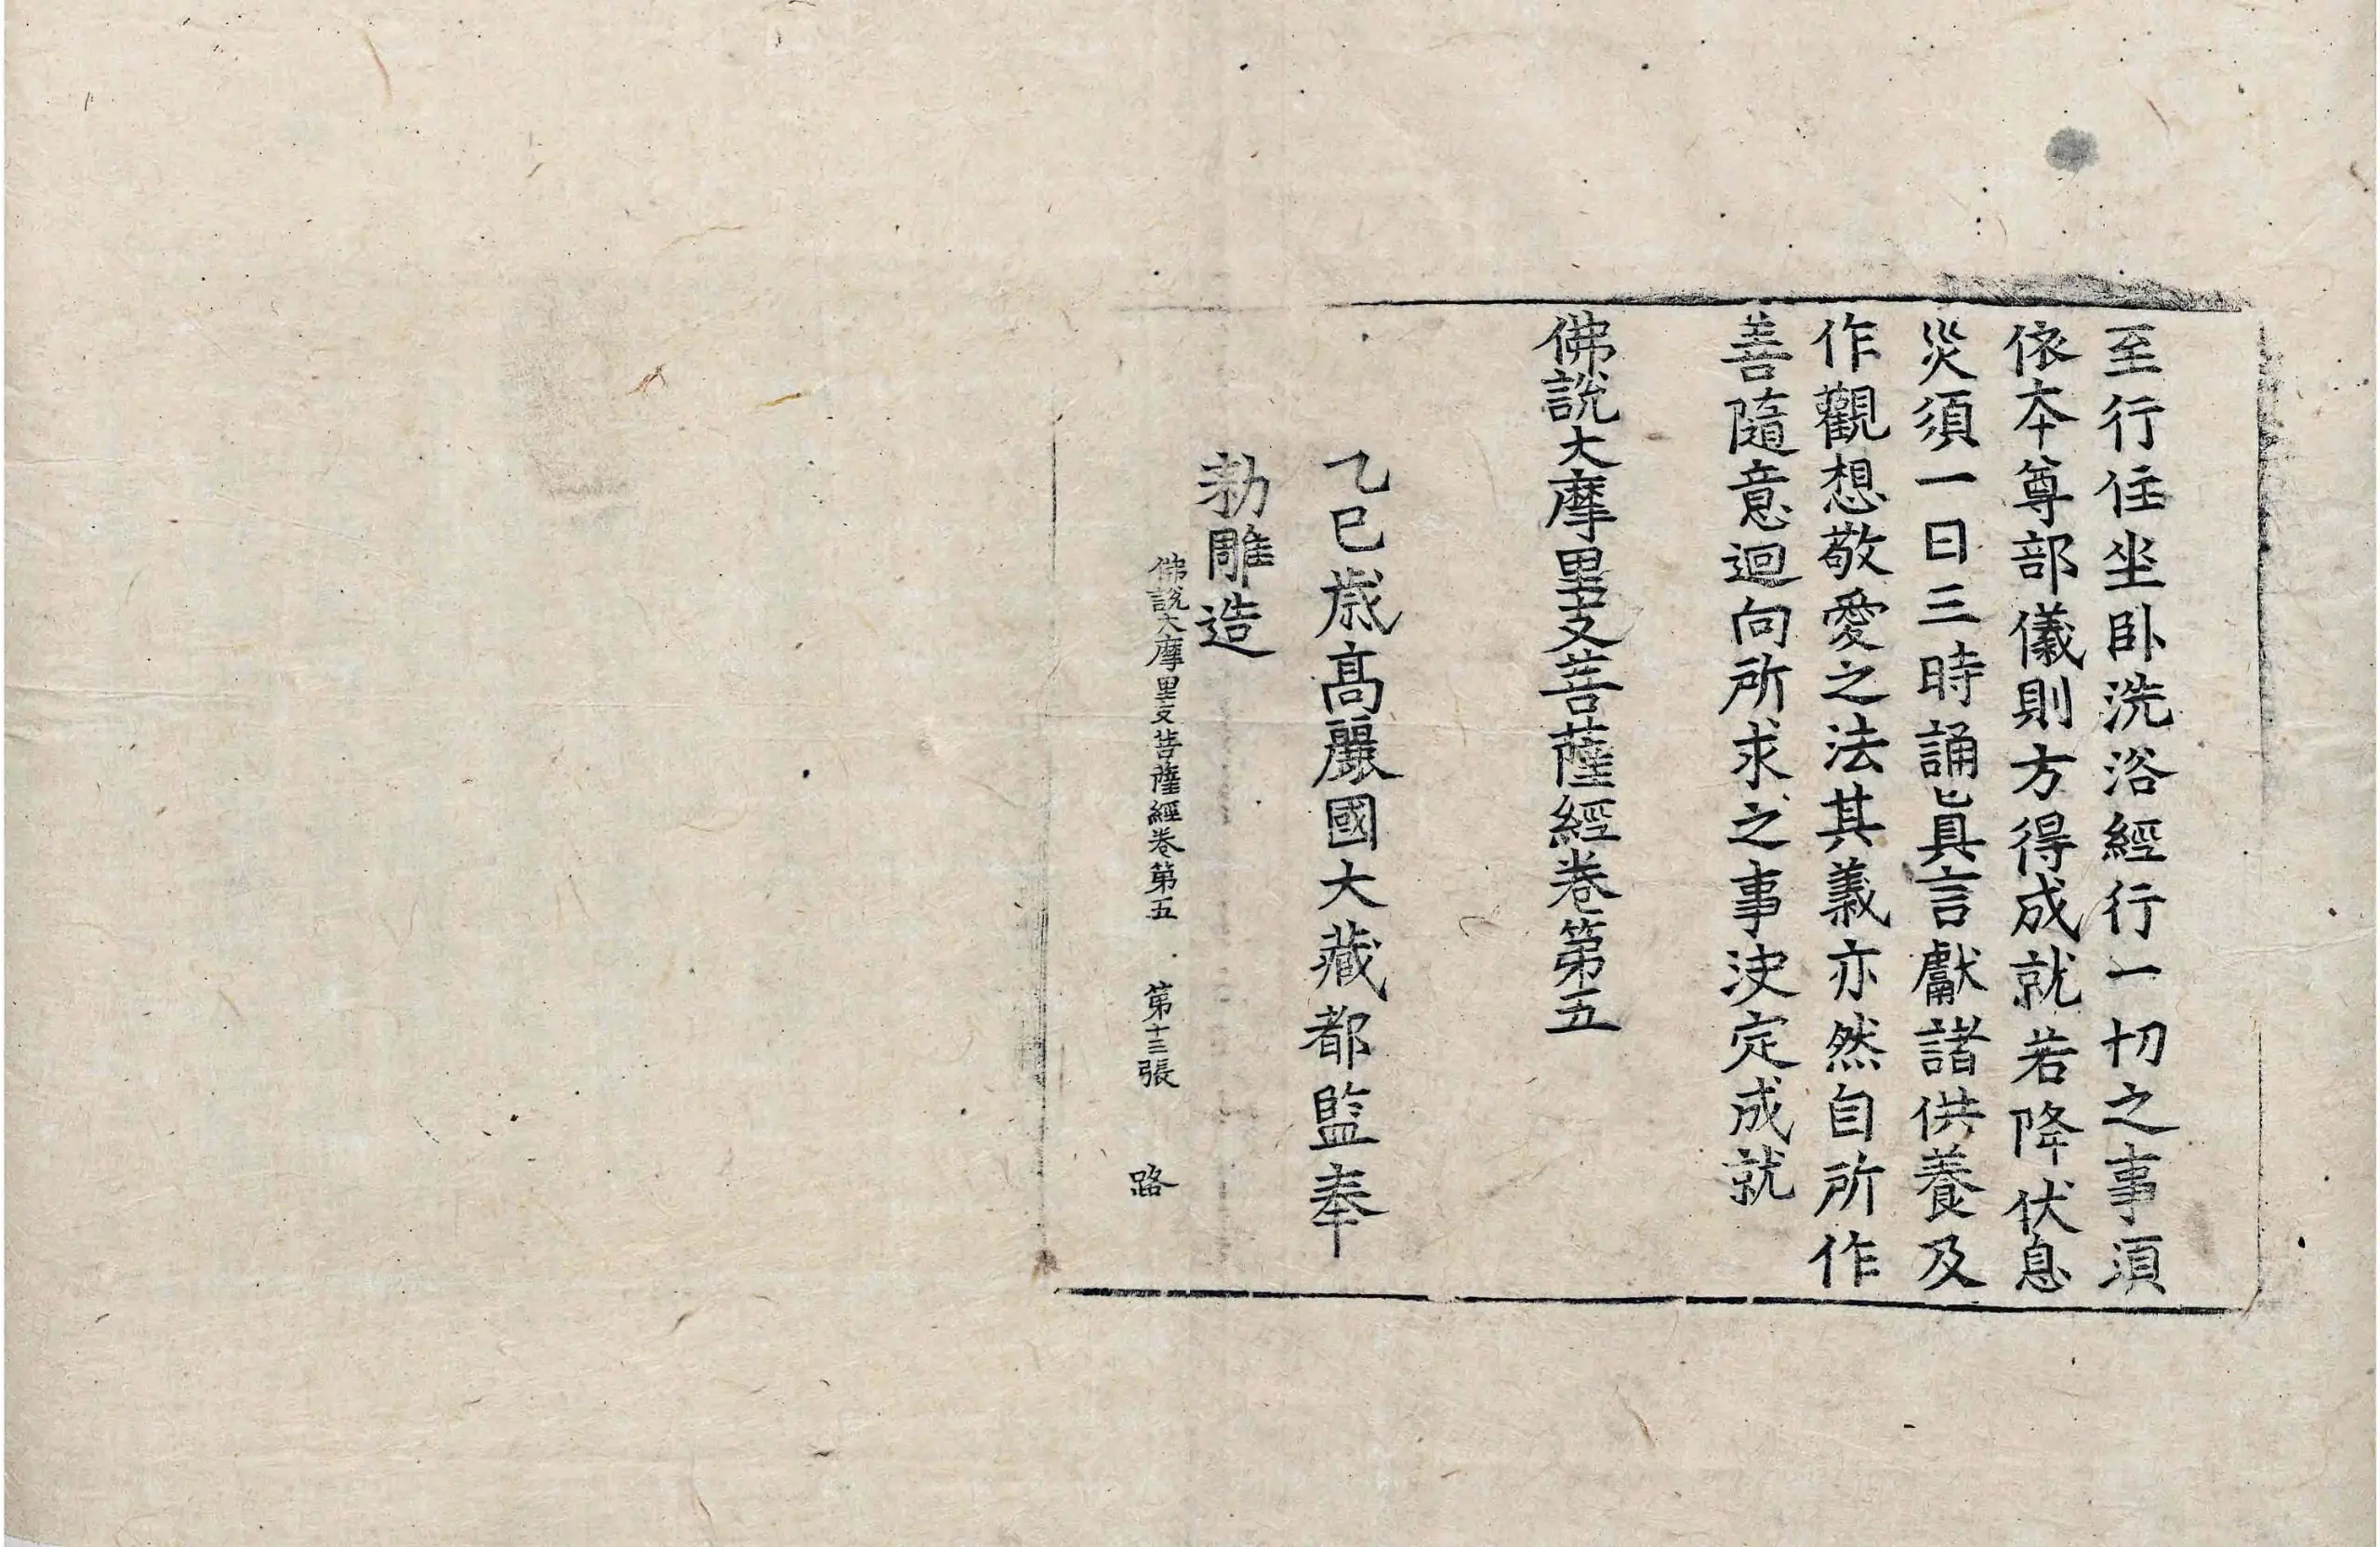 至行住坐卧洗浴經行一切之事須
依本尊部儀則方得成就若降伏息
災須一日三時誦眞言獻諸供養及
作觀想敬愛之法其義亦然自所作
善隨意迴向所求之事决定成就
佛說大摩里支菩薩經卷第五
乙巳歳高麗國大藏都監奉
勑雕造
佛說大摩里支菩薩經卷第五 第十三張 路